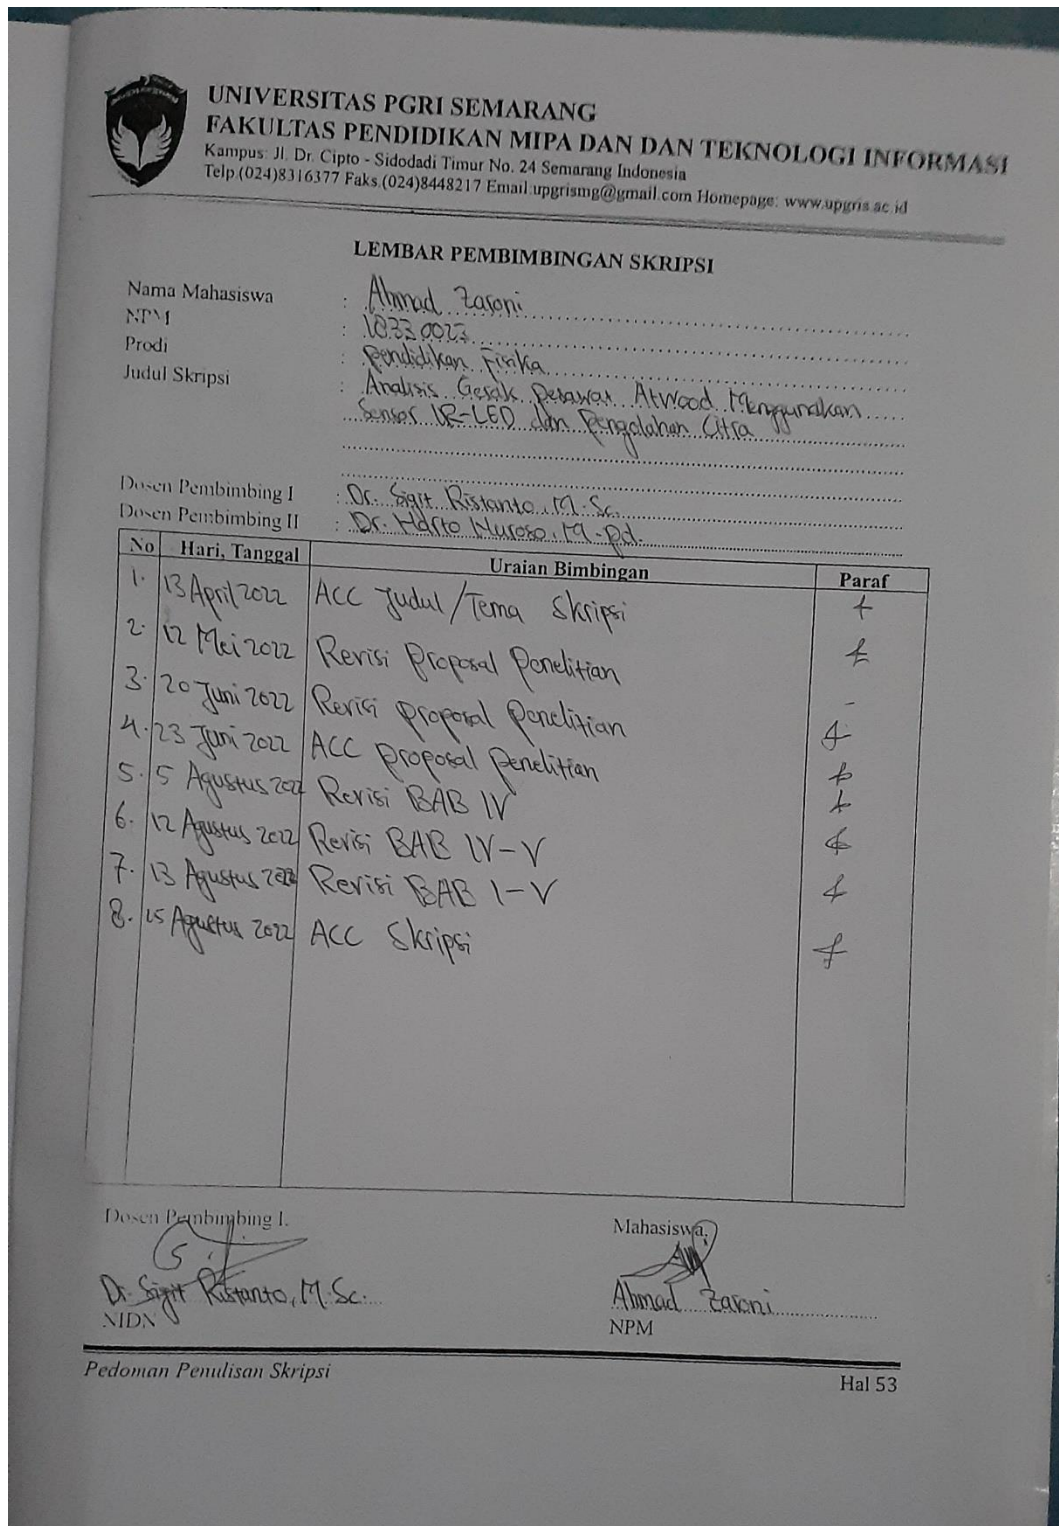 UNIVERSITAS PGRI SEMARANG
FAKULTAS PENDIDIKAN MIPA DAN DAN TEKNOLOGI INFORMASI
Kampus: Jl. Dr. Cipto - Sidodadi Timur No. 24 Semarang Indonesia
Telp.(024)8316377 Faks.(024)8448217 Email:upgrismg@gmail.com Homepage: www.upgris.ac.id
LEMBAR PEMBIMBINGAN SKRIPSI
Nama Mahasiswa : Ahmad Zaroni
NPM : 18330023
Prodi : Pendidikan Fisika
Judul Skripsi : Analisis Gerak Pesawat Atwood Menggunakan
Sensor IR-LED dan Pengolahan Citra
Dosen Pembimbing I : Dr. Sigit Ristanto, M.Sc.
Dosen Pembimbing II : Dr. Harto Nuroso, M.Pd.
No Hari, Tanggal Uraian Bimbingan Paraf
1. 13 April 2022 ACC Judul/Tema Skripsi
2. 12 Mei 2022 Revisi Proposal Penelitian
3. 20 Juni 2022 Revisi proposal penelitian
4. 23 Juni 2022 ACC proposal penelitian
5. 5 Agustus 2022 Revisi BAB IV
6. 12 Agustus 2022 Revisi BAB IV-V
7. 13 Agustus 2022 Revisi BAB I-V
8. 15 Agustus 2022 ACC Skripsi
Dosen Pembimbing I. Mahasiswa,
Dr. Sigit Ristanto, M.Sc. Ahmad Zaroni
NIDN NPM
Pedoman Penulisan Skripsi Hal 53